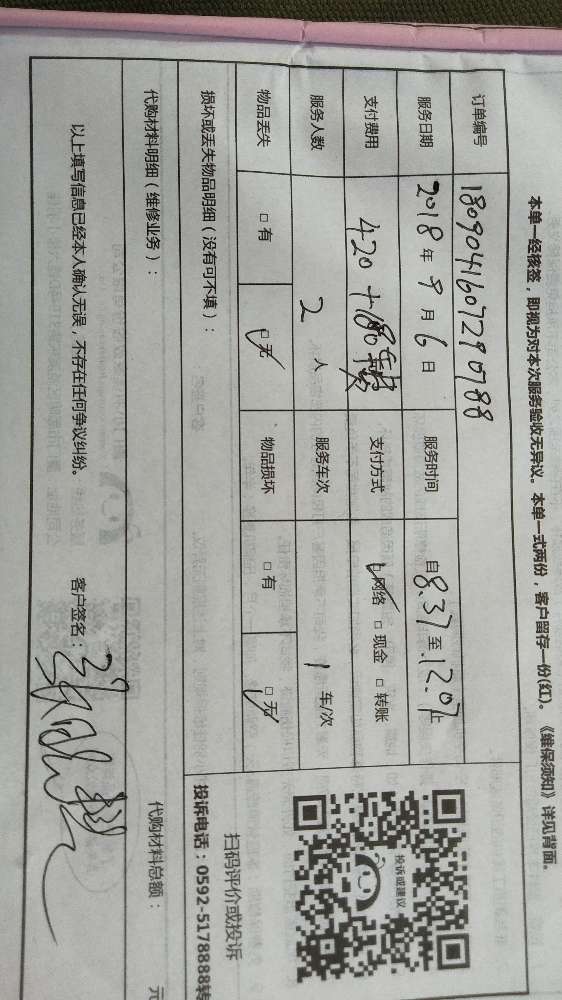 本单一经核签，即视为对本次服务验收无异议。本单一式两份，客户留存一份(红)。《维保须知》详见背面。
订单编号 18090416072907 88
服务日期 2018年9月6日 服务时间 自8.37至12.07止
支付费用 420+180 支付方式 ☑网络 □现金 □转账
服务人数 2人 服务车次 1车/次
物品丢失 □有 ☑无 物品损坏 □有 ☑无
损坏或丢失物品明细（没有可不填）：
投诉或建议
扫码评价或投诉
投诉电话：0592-5178888转
代购材料明细（维修业务）： 代购材料总额： 元
以上填写信息已经本人确认无误，不存在任何争议纠纷。 客户签名：